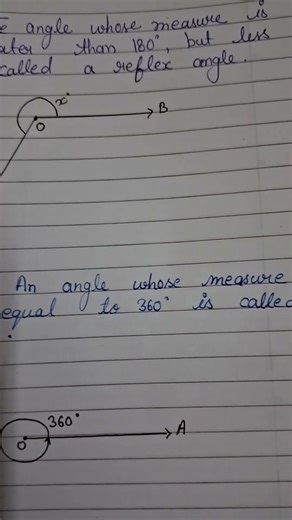 angle whose measure is
ater than 180°, but less
called a reflex angle.
x°
B
O
An angle whose measure
equal to 360° is called
360°
O
A